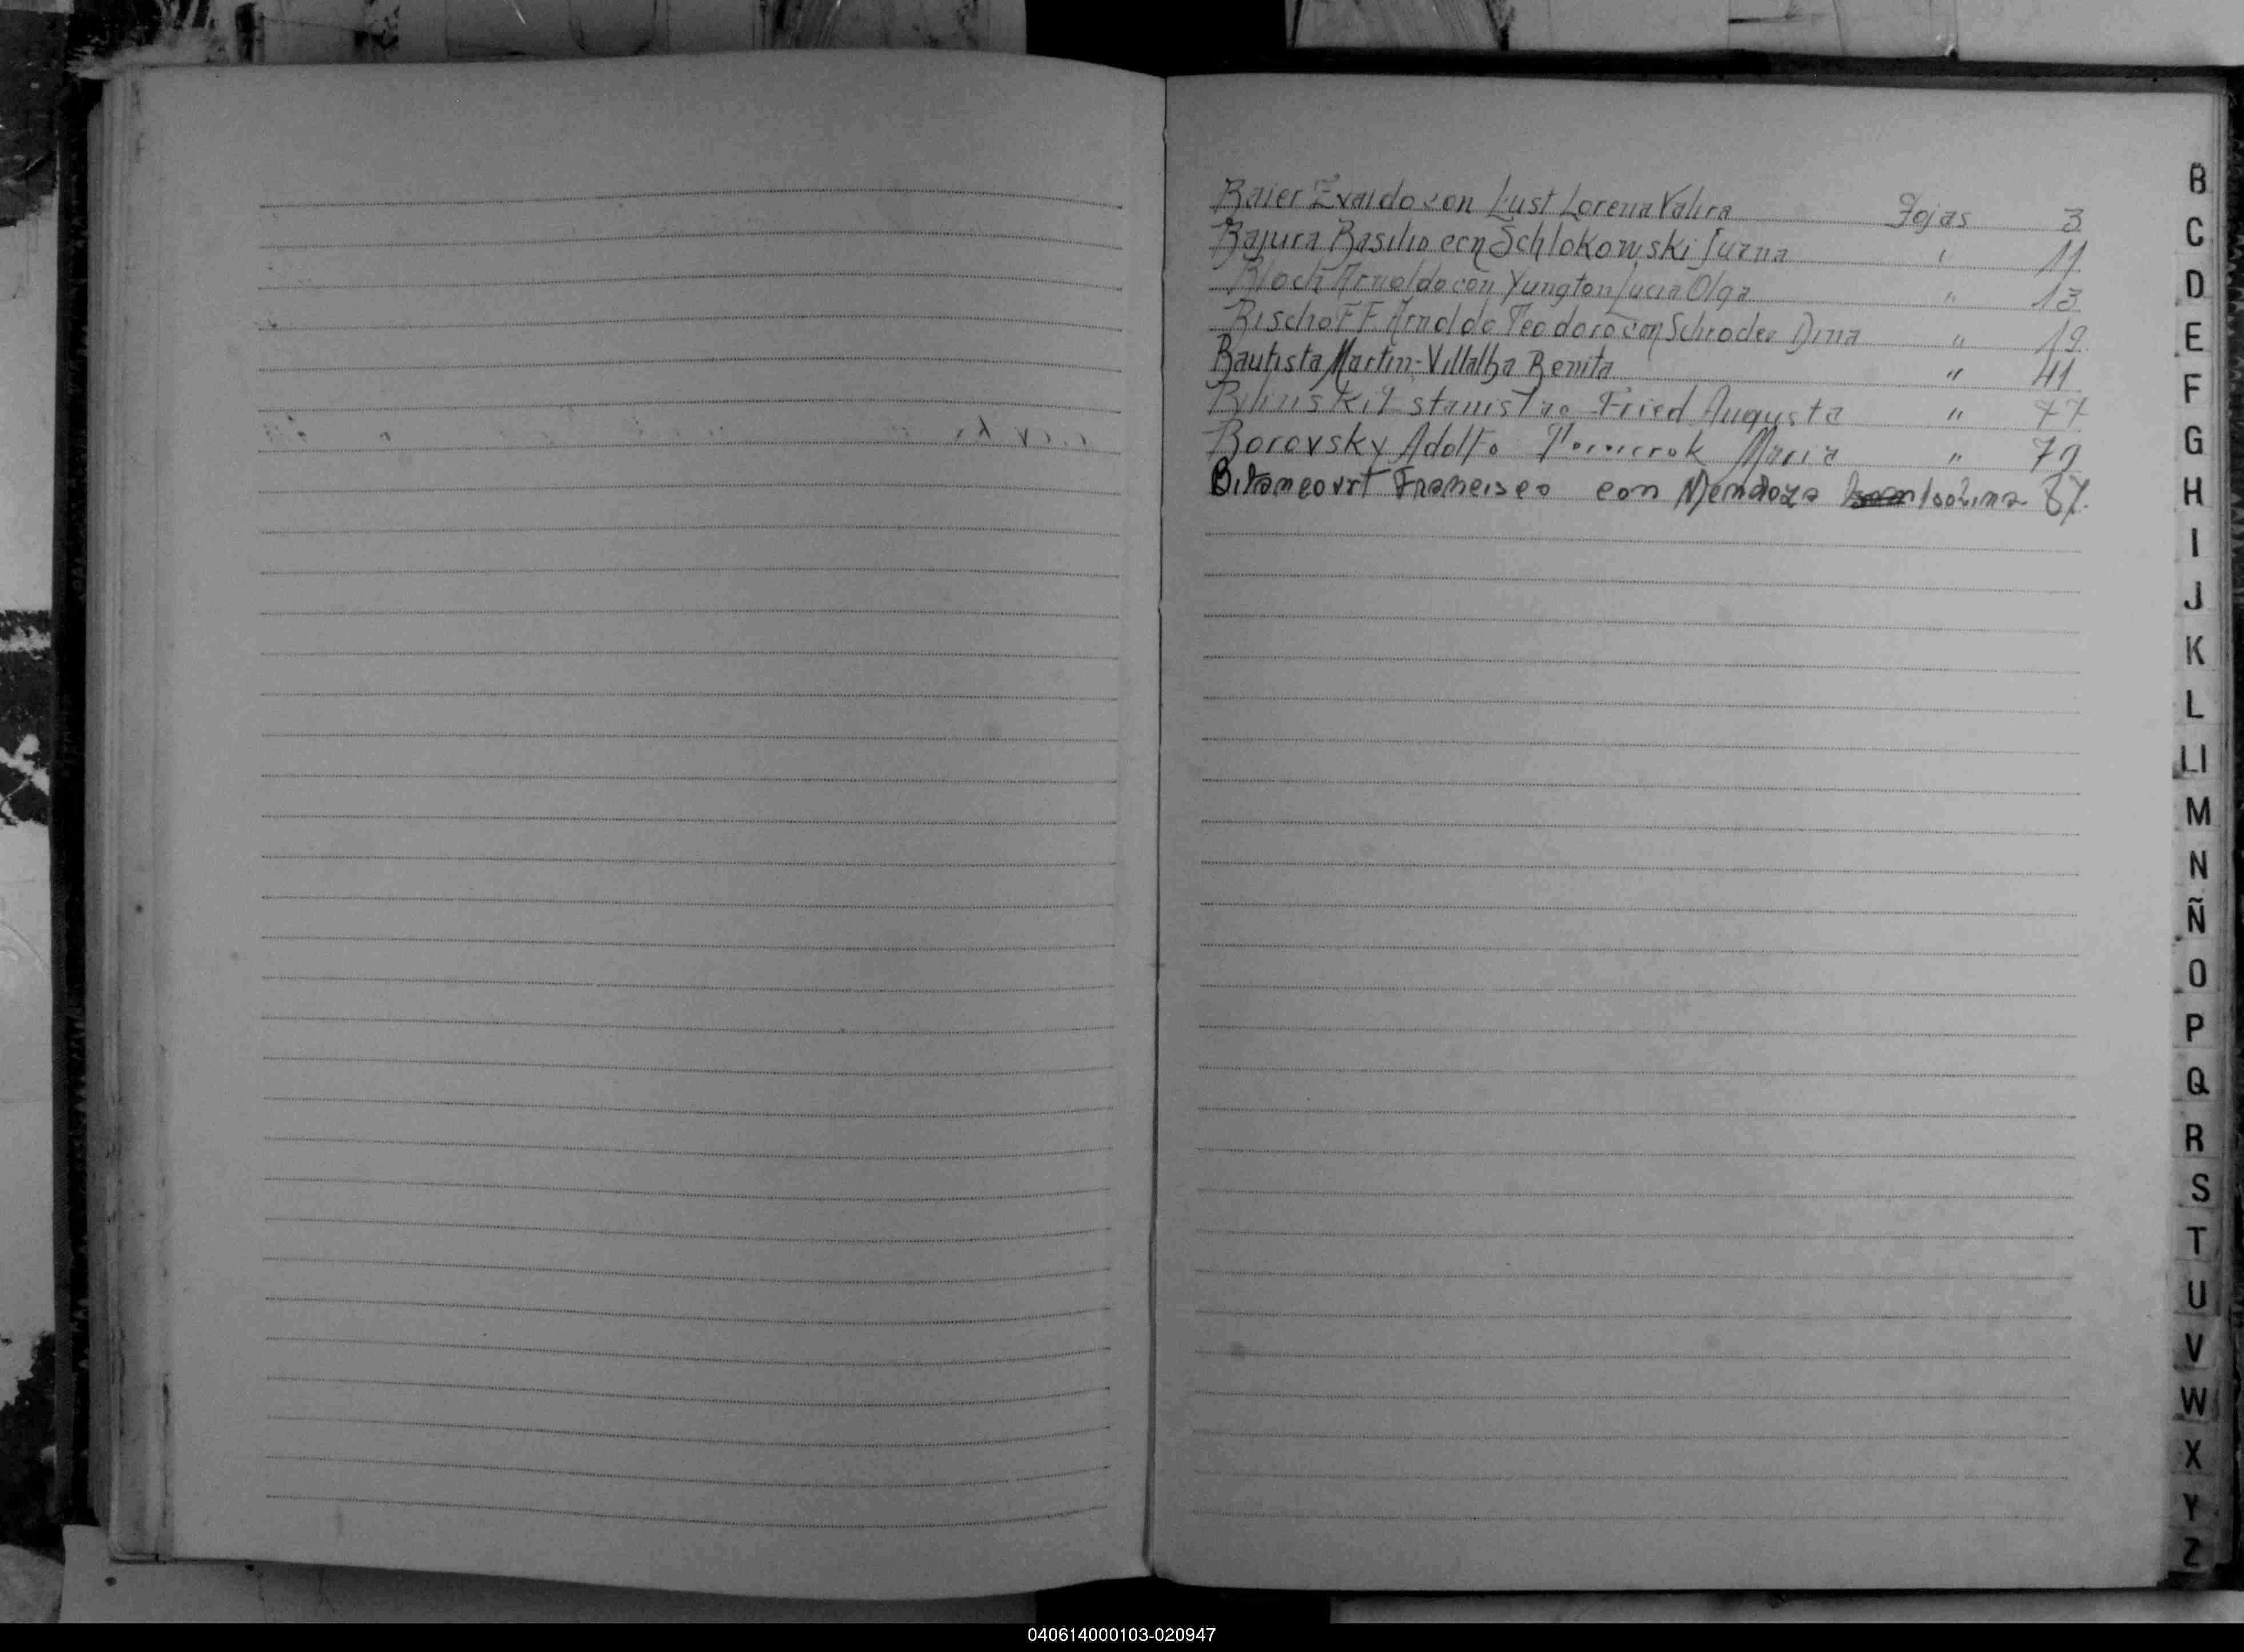 Baier Evaldo con Lust Lorena Valira Fojas 3
Bajura Basilio con Schlokowski " 11
Bloch Arnoldo con Yungton Lucia Olga " 13
Bischoff Arnoldo Teodoro con Schroder " 19
Bautista Martin - Villalba Benita " 41
Estanislao Fried Augusta " 77
Borovsky Adolfo Maria " 79
Bitancourt Francisco con Mendoza 87
B
C
D
E
F
G
H
I
J
K
L
Ll
M
N
Ñ
O
P
Q
R
S
T
U
V
W
X
Y
Z
040614000103-020947